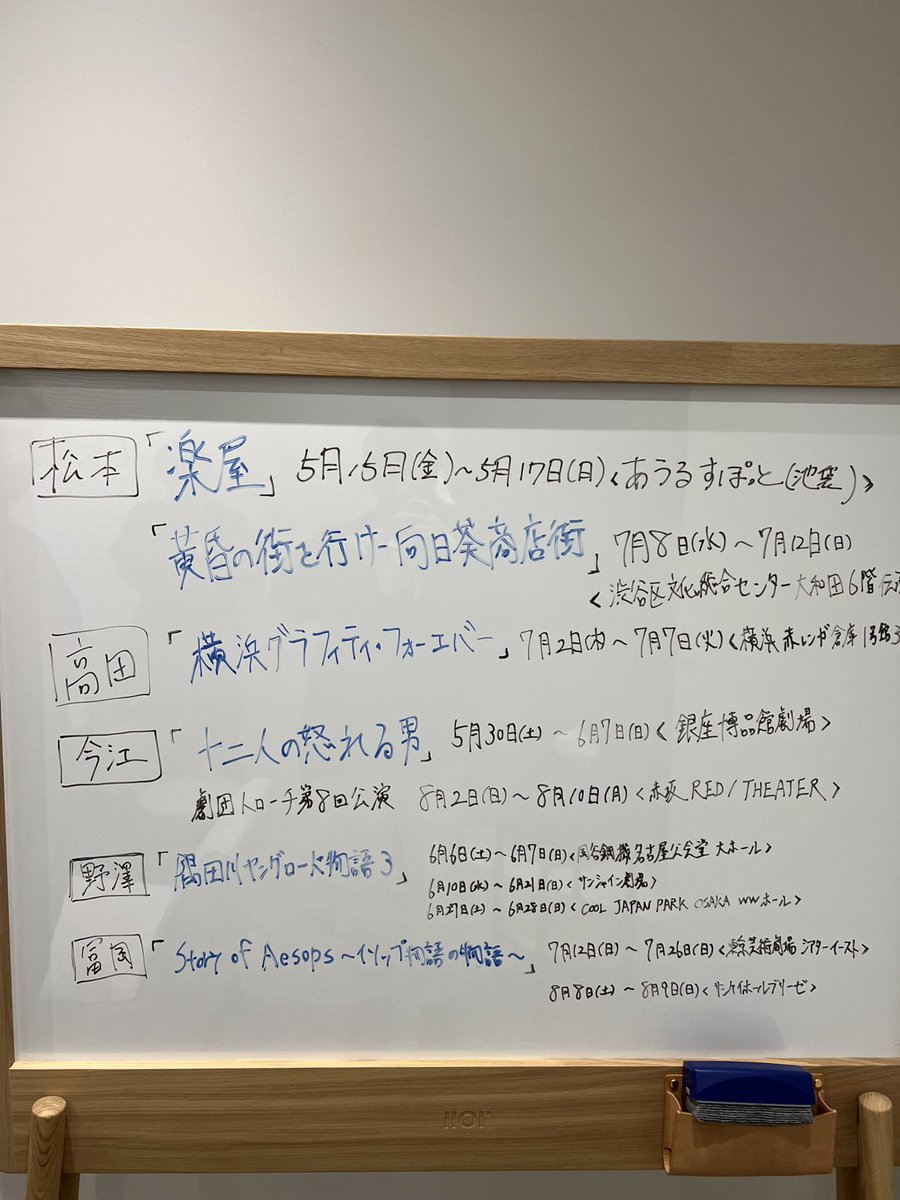 松本 「楽屋」 5月15日(金)～5月17日(日)<あうるすぽっと(池袋)>
「黄昏の街を行けー向日葵商店街」 7月8日(水)～7月12日(日)
<渋谷区文化総合センター大和田6階伝
高田 「横浜グラフィティ・フォーエバー」 7月2日(木)～7月7日(火)<横浜赤レンガ倉庫1号館3
今江 「十二人の怒れる男」 5月30日(土)～6月7日(日)<銀座博品館劇場>
劇団トローチ第8回公演 8月2日(日)～8月10日(月)<赤坂RED/THEATER>
野澤 「隅田川ヤングロード物語3」 6月6日(土)～6月7日(日)<岡谷鋼機名古屋公会堂 大ホール>
6月10日(水)～6月21日(日)<サンシャイン劇場>
6月27日(土)～6月28日(日)<COOL JAPAN PARK OSAKA WWホール>
冨岡 「Story of Aesops～イソップ物語の物語～」 7月12日(日)～7月26日(日)<東京芸術劇場 シアターイースト>
8月8日(土)～8月9日(日)<サンケイホールブリーゼ>